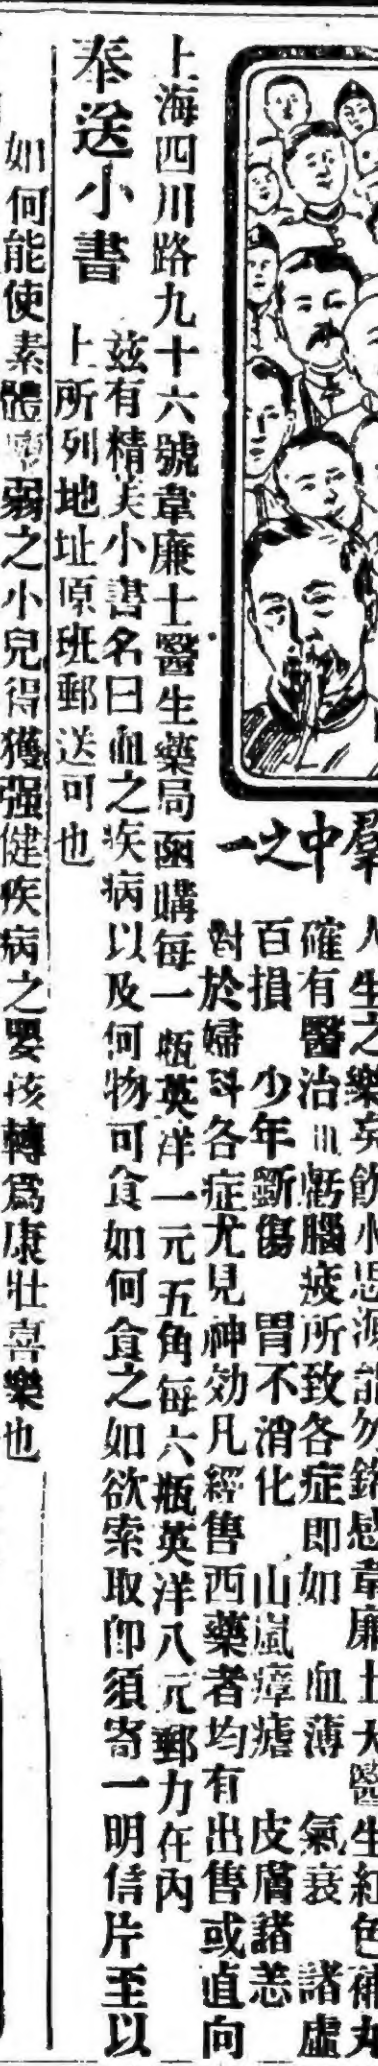 羣中之一
人生之樂矣飲水思源能勿銘感韋廉士大醫生紅色補丸
確有醫治血虧腦疲所致各症即如 血薄 氣衰 諸虛
百損 少年斲傷 胃不消化 山嵐瘴瘧 皮膚諸恙
對於婦科各症尤見神効凡經售西藥者均有出售或直向
上海四川路九十六號韋廉士醫生藥局函購每一瓶英洋一元五角每六瓶英洋八元郵力在內
奉送小書
茲有精美小書名曰血之疾病以及何物可食如何食之如欲索取卽須寄一明信片至以
上所列地址原班郵送可也
如何能使素體弱之小兒得獲强健疾病之嬰孩轉爲康壯喜樂也